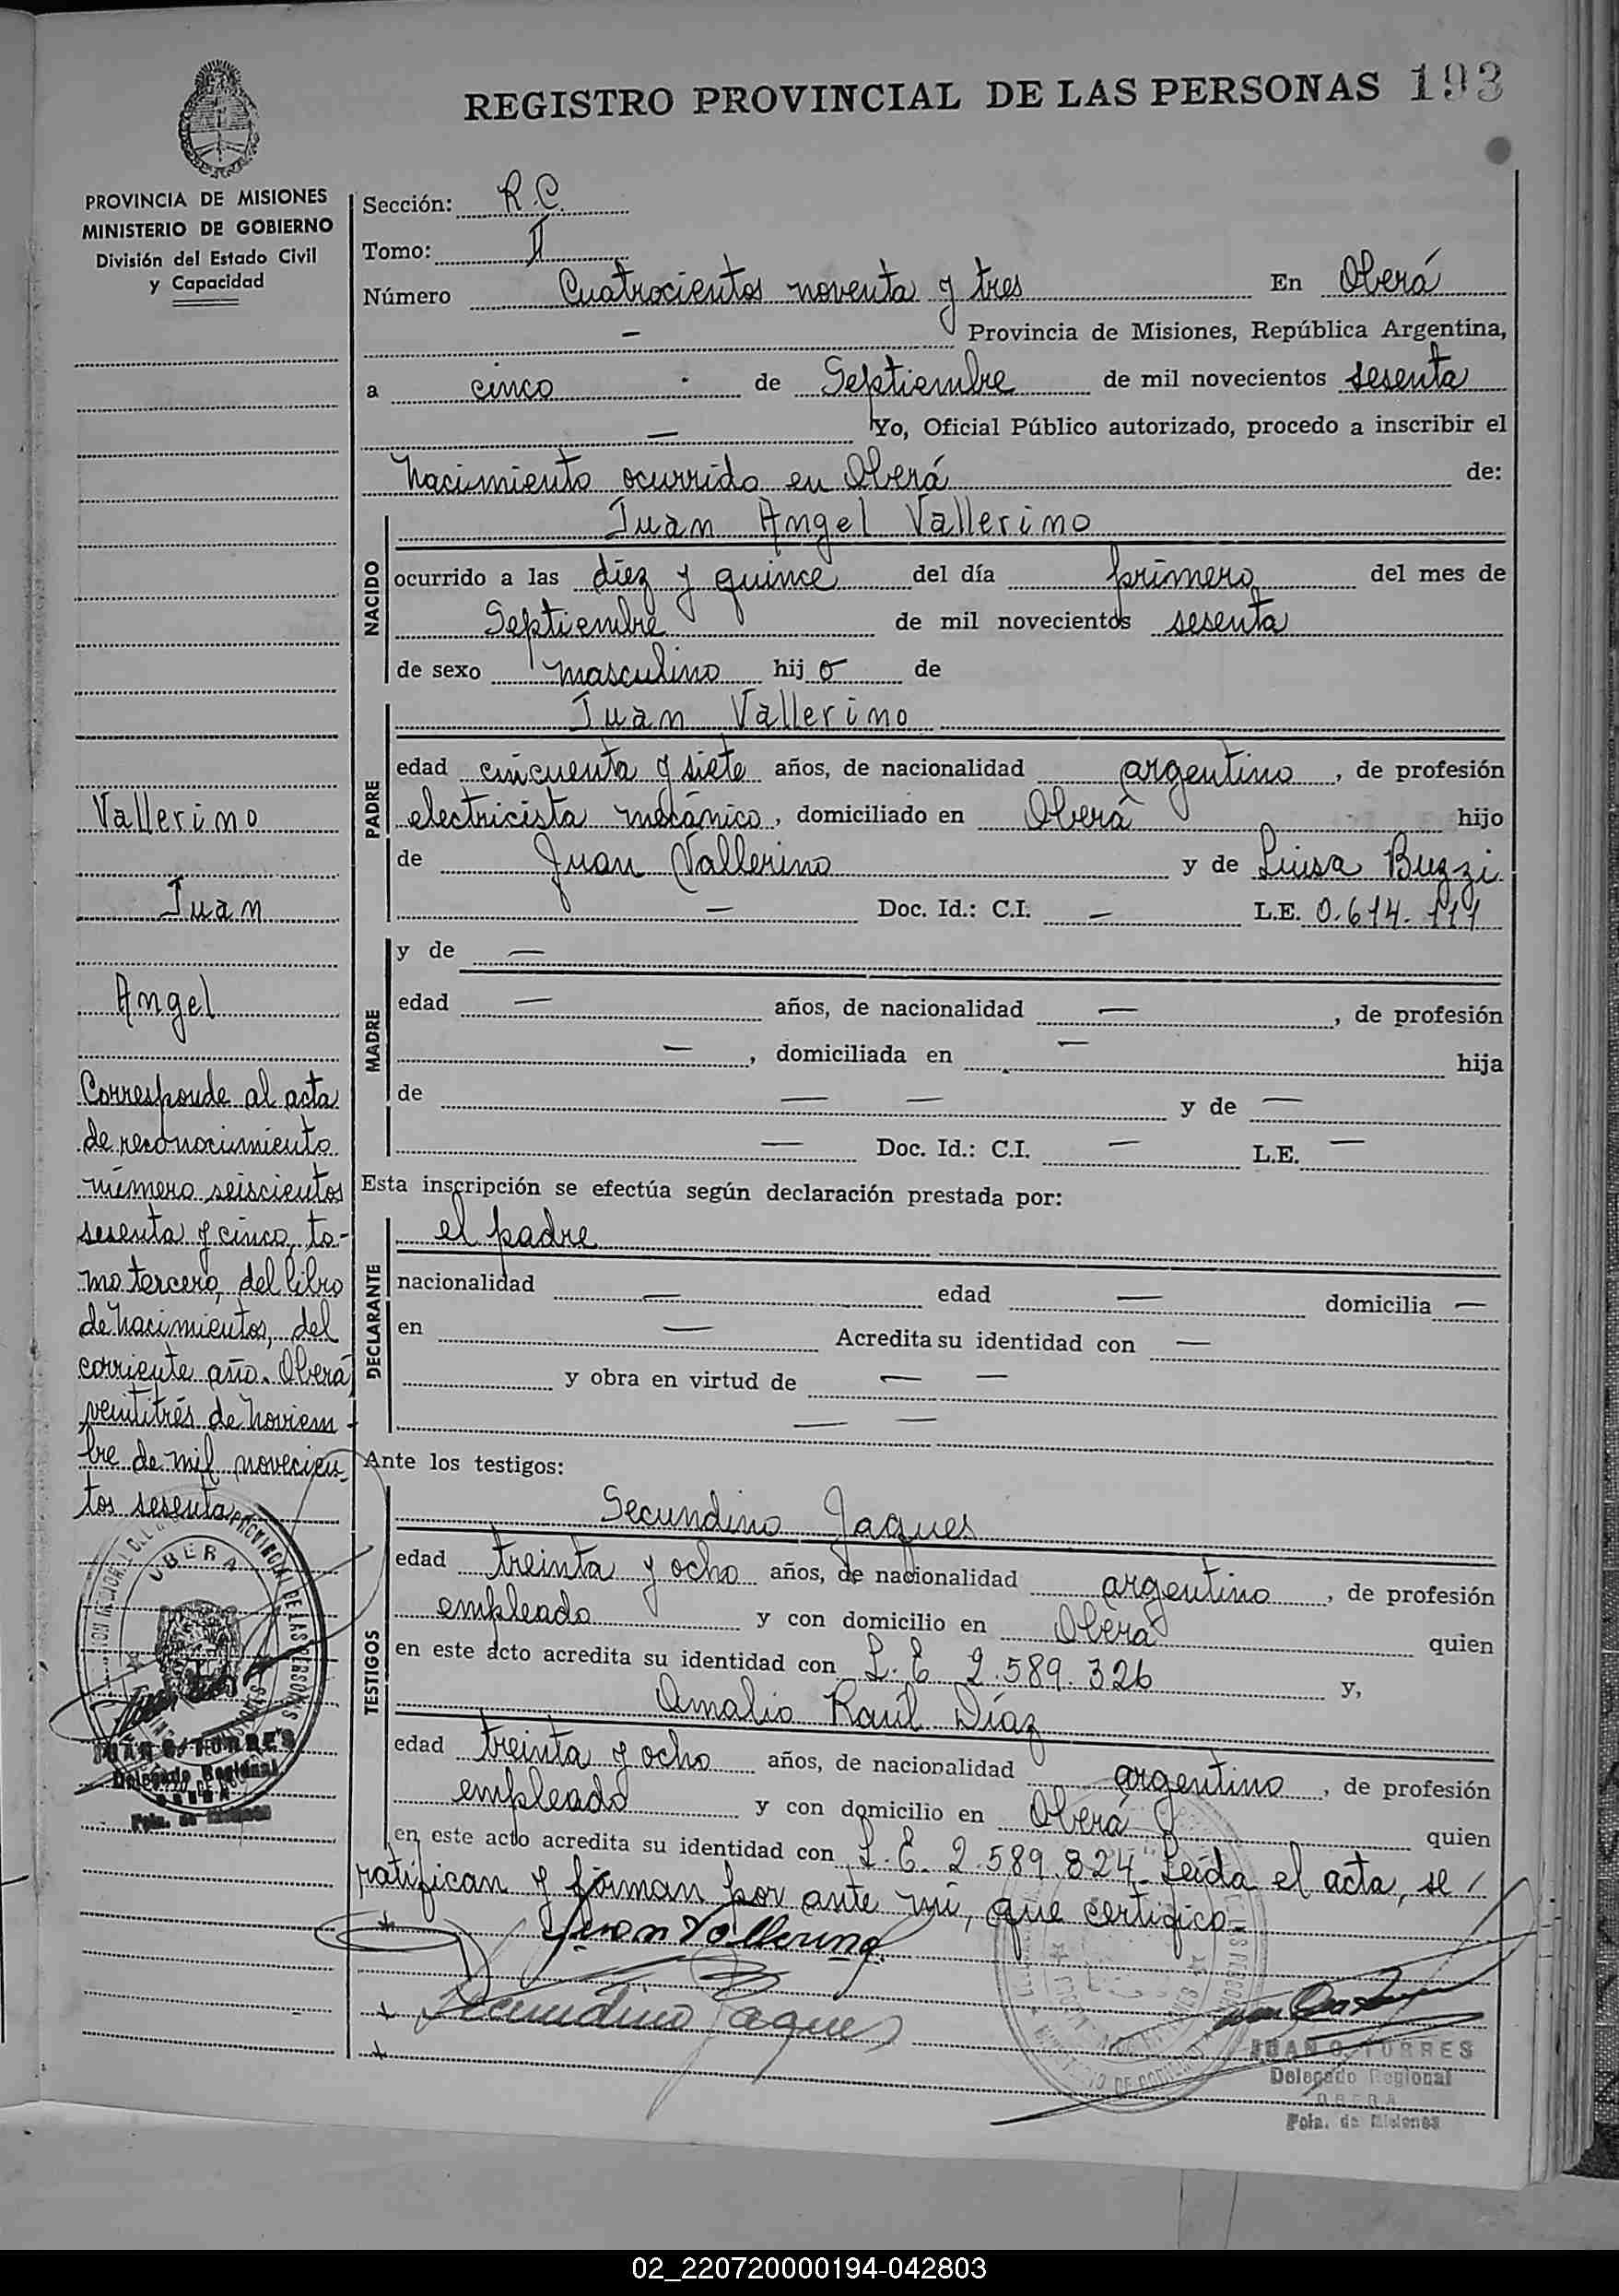 REGISTRO PROVINCIAL DE LAS PERSONAS 193
PROVINCIA DE MISIONES
MINISTERIO DE GOBIERNO
División del Estado Civil
y Capacidad
Sección: R.C.
Tomo: II
Número Cuatrocientos noventa y tres En Oberá
— Provincia de Misiones, República Argentina,
a cinco de Septiembre de mil novecientos sesenta
— Yo, Oficial Público autorizado, procedo a inscribir el
Nacimiento ocurrido en Oberá de:
NACIDO
Juan Angel Vallerino
ocurrido a las diez y quince del día primero del mes de
Septiembre de mil novecientos sesenta
de sexo masculino hijo de
PADRE
Juan Vallerino
edad cincuenta y siete años, de nacionalidad argentino, de profesión
electricista mecánico, domiciliado en Oberá hijo
de Juan Vallerino y de Luisa Buzzi
— Doc. Id.: C.I. — L.E. 0.614.111
MADRE
y de —
edad — años, de nacionalidad —, de profesión
—, domiciliada en — hija
de — — y de —
— Doc. Id.: C.I. — L.E. —
Esta inscripción se efectúa según declaración prestada por:
DECLARANTE
el padre
nacionalidad — edad — domicilia —
en — Acredita su identidad con —
y obra en virtud de — —
— —
Ante los testigos:
TESTIGOS
Secundino Jaques
edad treinta y ocho años, de nacionalidad argentino, de profesión
empleado y con domicilio en Oberá quien
en este acto acredita su identidad con L.E. 2.589.326 y,
Amalio Raúl Díaz
edad treinta y ocho años, de nacionalidad argentino, de profesión
empleado y con domicilio en Oberá quien
en este acto acredita su identidad con L.E. 2.589.824 Leída el acta, se
ratifican y firman por ante mí, que certifico.
Juan Vallerino
Secundino Jaques
JUAN C. TORRES
Delegado Regional
OBERA
Pcia. de Misiones
Vallerino
Juan
Angel
Corresponde al acta
de reconocimiento
número seiscientos
sesenta y cinco, to-
mo tercero, del libro
de Nacimientos, del
corriente año. Oberá
veintitrés de Noviem-
bre de mil novecien-
tos sesenta
OBERA
JUAN C. TORRES
Delegado Regional
OBERA
Pcia. de Misiones
02_220720000194-042803